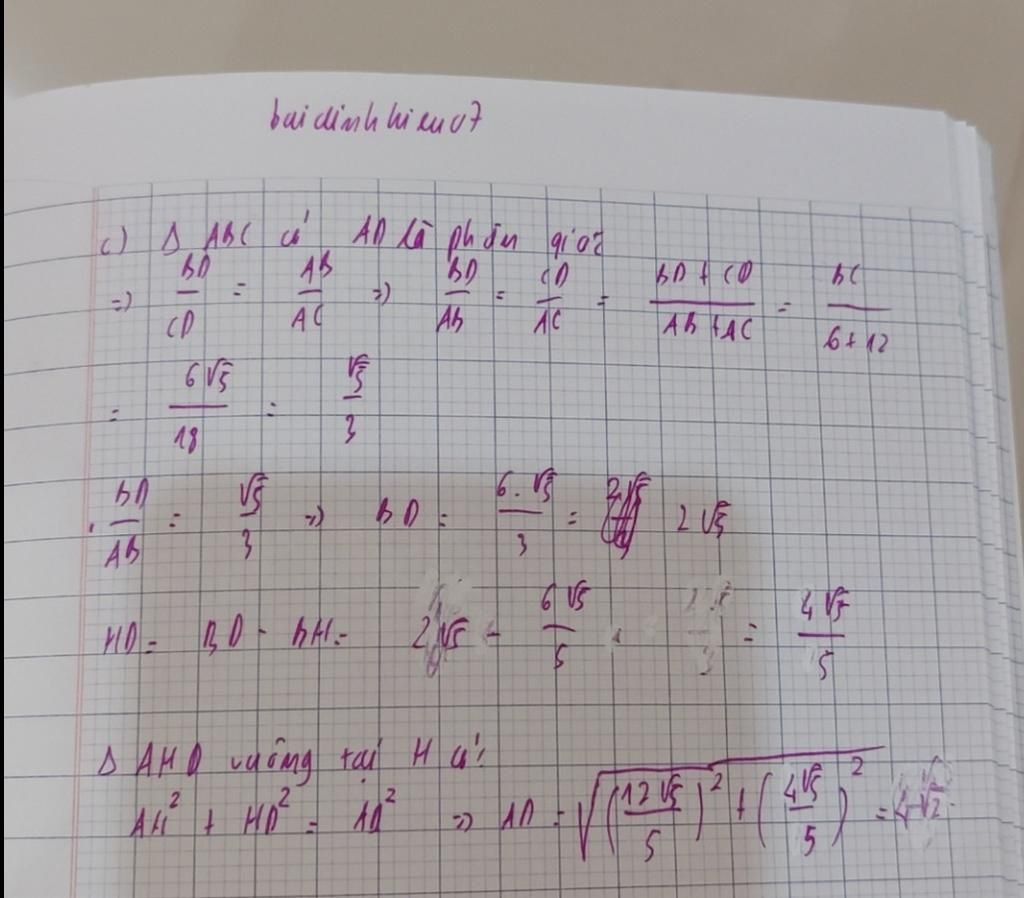 buidinhhieu07
c) Δ ABC có AD là phân giác
=> BD/CD = AB/AC => BD/AB = CD/AC = (BD + CD)/(AB + AC) = BC/(6 + 12)
= 6√5/18 = √5/3
. BD/AB = √5/3 => BD = 6.√5/3 = 2√5
HD = BD - BH = 2√5 - 6√5/5 = 4√5/5
Δ AHD vuông tại H có:
AH² + HD² = AD² => AD = √((12√5/5)² + (4√5/5)²) = 4√2.